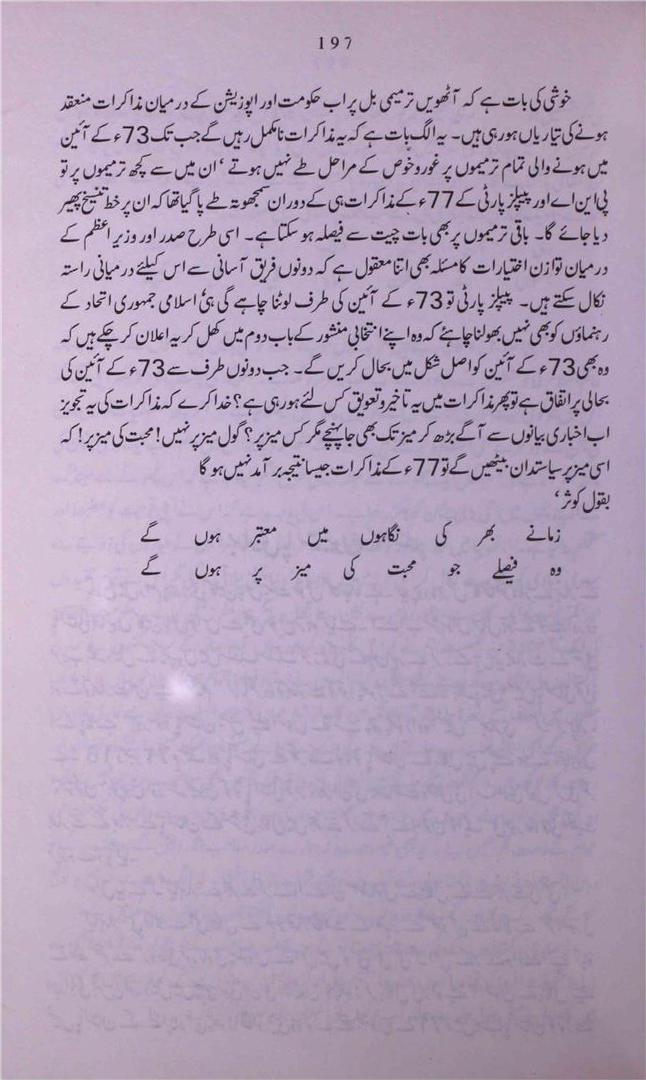 197
خوشی کی بات ہے کہ آٹھویں ترمیمی بل پر اب حکومت اور اپوزیشن کے درمیان مذاکرات منعقد
ہونے کی تیاریاں ہو رہی ہیں۔ یہ الگ بات ہے کہ یہ مذاکرات نامکمل رہیں گے جب تک 73ء کے آئین
میں ہونے والی تمام ترمیموں پر غور و خوض کے مراحل طے نہیں ہوتے ‘ ان میں سے کچھ ترمیموں پر تو
پی این اے اور پیپلز پارٹی کے 77ء کے مذاکرات ہی کے دوران سمجھوتہ طے پا گیا تھا کہ ان پر خط تنسیخ پھیر
دیا جائے گا۔ باقی ترمیموں پر بھی بات چیت سے فیصلہ ہو سکتا ہے۔ اسی طرح صدر اور وزیر اعظم کے
درمیان توازن اختیارات کا مسئلہ بھی اتنا معقول ہے کہ دونوں فریق آسانی سے اس کیلئے درمیانی راستہ
نکال سکتے ہیں۔ پیپلز پارٹی تو 73ء کے آئین کی طرف لوٹنا چاہے گی ہی‘ اسلامی جمہوری اتحاد کے
رہنماؤں کو بھی نہیں بھولنا چاہئے کہ وہ اپنے انتخابی منشور کے باب دوم میں کھل کر یہ اعلان کر چکے ہیں کہ
وہ بھی 73ء کے آئین کو اصل شکل میں بحال کریں گے۔ جب دونوں طرف سے 73ء کے آئین کی
بحالی پر اتفاق ہے تو پھر مذاکرات میں یہ تاخیر و تعویق کس لئے ہو رہی ہے؟ خدا کرے کہ مذاکرات کی یہ تجویز
اب اخباری بیانوں سے آگے بڑھ کر میز تک بھی جا پہنچے مگر کس میز پر؟ گول میز پر نہیں! محبت کی میز پر! کہ
اسی میز پر سیاستدان بیٹھیں گے تو 77ء کے مذاکرات جیسا نتیجہ برآمد نہیں ہو گا
بقول کوثر‘
زمانے بھر کی نگاہوں میں معتبر ہوں گے
وہ فیصلے جو محبت کی میز پر ہوں گے